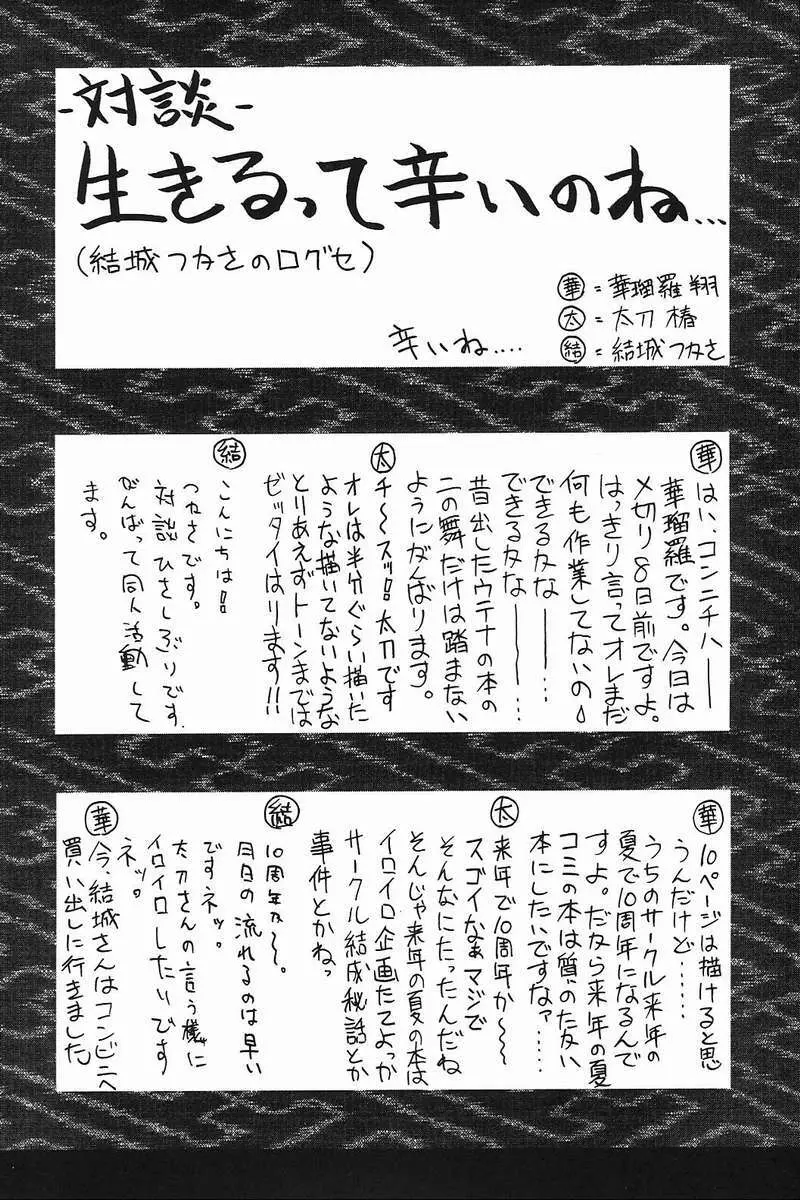 -対談-
生きるって辛いのね…
(結城つかさの口グセ)
辛いね‥‥
華=華瑠羅翔
太=太刀椿
結=結城つかさ
華
はい、コンニチハ――
華瑠羅です。今日は
〆切り8日前ですよ。
はっきり言ってオレまだ
何も作業してないの。
できるかな――…
できるかな――…
昔出したウテナの本の
二の舞だけは踏まない
ようにがんばります。
太
チ〜スッ!!太刀です
オレは半分ぐらい描いた
ような描いてないような
とりあえずトーンまでは
ゼッタイはります!!
結
こんにちは!!
つかさです。
対談ひさしぶりです。
がんばって同人活動して
ます。
華
10ページは描けると思
うんだけど……
うちのサークル来年の
夏で10周年になるんで
すよ。だから来年の夏
コミの本は質のたかい
本にしたいですなァ……
太
来年で10周年か〜〜
スゴイなぁマジで
そんなにたったんだね
そんじゃ来年の夏の本は
イロイロ企画たてよっか
サークル結成秘話とか
事件とかねっ
結
10周年か〜。
月日の流れるのは早い
ですネッ。
太刀さんの言う様に
イロイロしたいです
ネッ。
華
今、結城さんはコンビニへ
買い出しに行きました